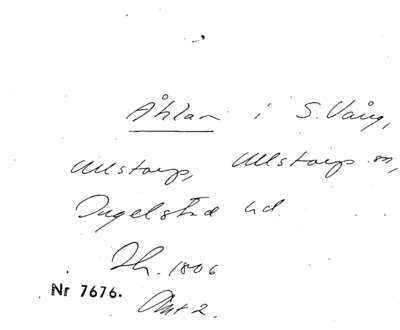 Åhlan i S. Vång,
Ullstorp, Ullstorp sn,
Ingelstad hd
Th. 1806
Nr 7676.
Akt 2.